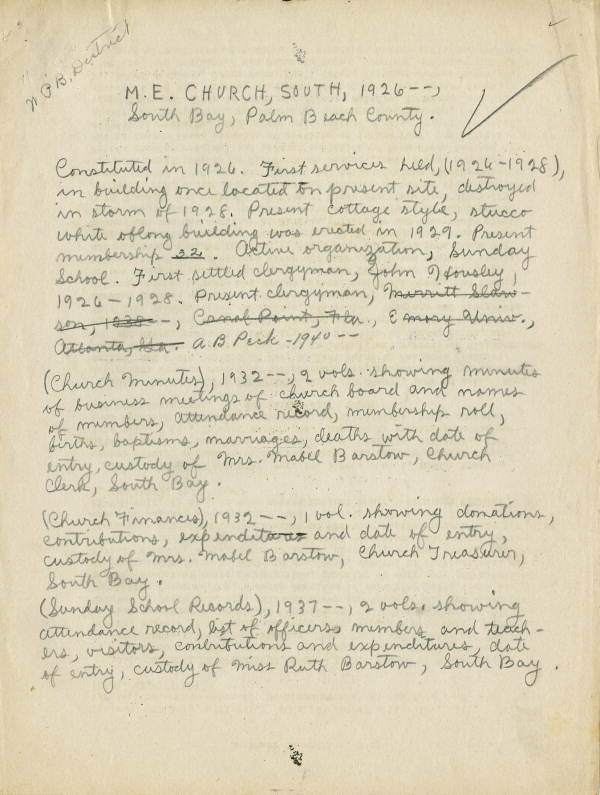 W.P.B. District
M.E. CHURCH, SOUTH, 1926--,
South Bay, Palm Beach County.
Constituted in 1926. First services held, (1926-1928),
in building once located on present site, destroyed
in storm of 1928. Present cottage style, stucco
white oblong building was erected in 1929. Present
membership 32. Active organization, Sunday
School. First settled clergyman, John Housley,
1926-1928. Present clergyman, Merritt Slaw-
son, 1938--, Canal Point, Fla., Emory Univ.,
Atlanta, Ga. A.B Peck -1940--
(Church Minutes), 1932--, 2 vols. showing minutes
of business meetings of church board and names
of members, attendance record, membership roll,
births, baptisms, marriages, deaths with date of
entry, custody of Mrs. Mabel Barstow, Church
Clerk, South Bay.
(Church Finances), 1932--, 1 vol. showing donations,
contributions, expenditures and date of entry,
custody of Mrs. Mabel Barstow, Church Treasurer,
South Bay.
(Sunday School Records), 1937--, 2 vols. showing
attendance record, list of officers, members and teach-
ers, visitors, contributions and expenditures, date
of entry, custody of Miss Ruth Barstow, South Bay.